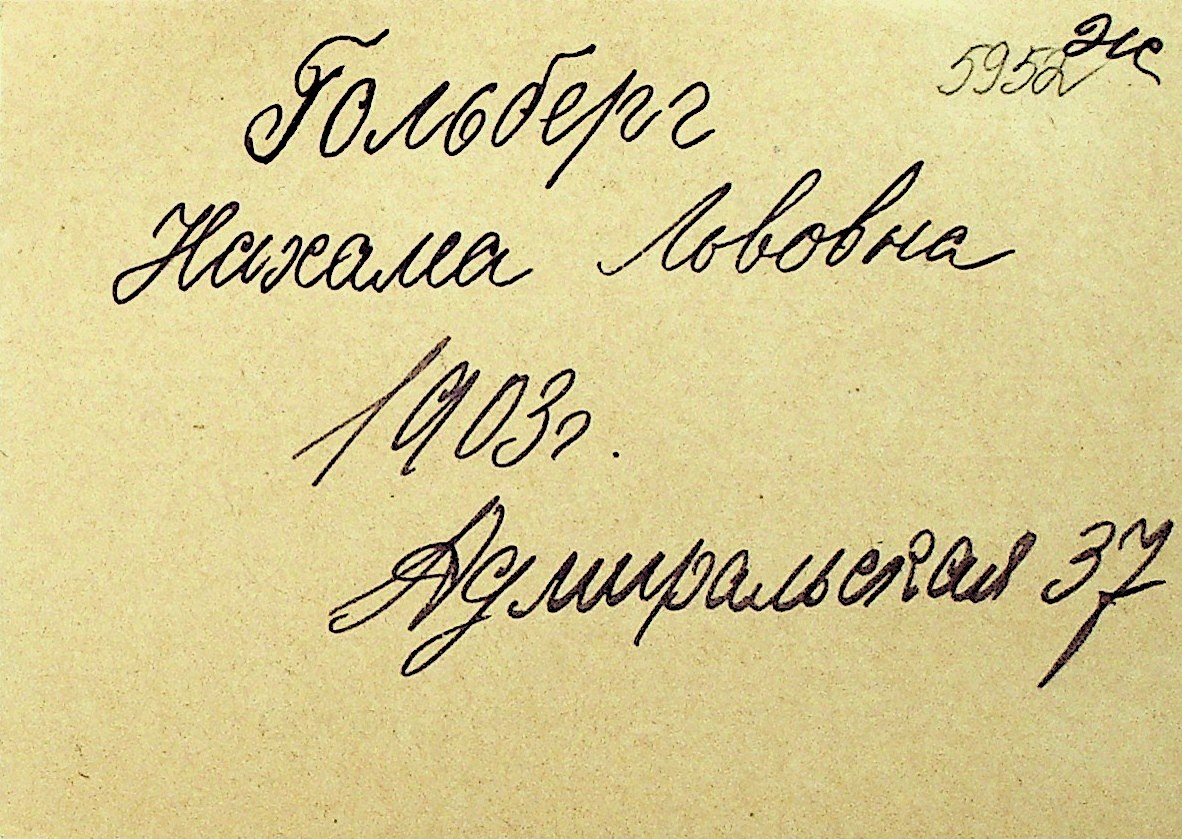 5952 ж
Гольберг
Нахама Львовна
1903г.
Адмиральская 37